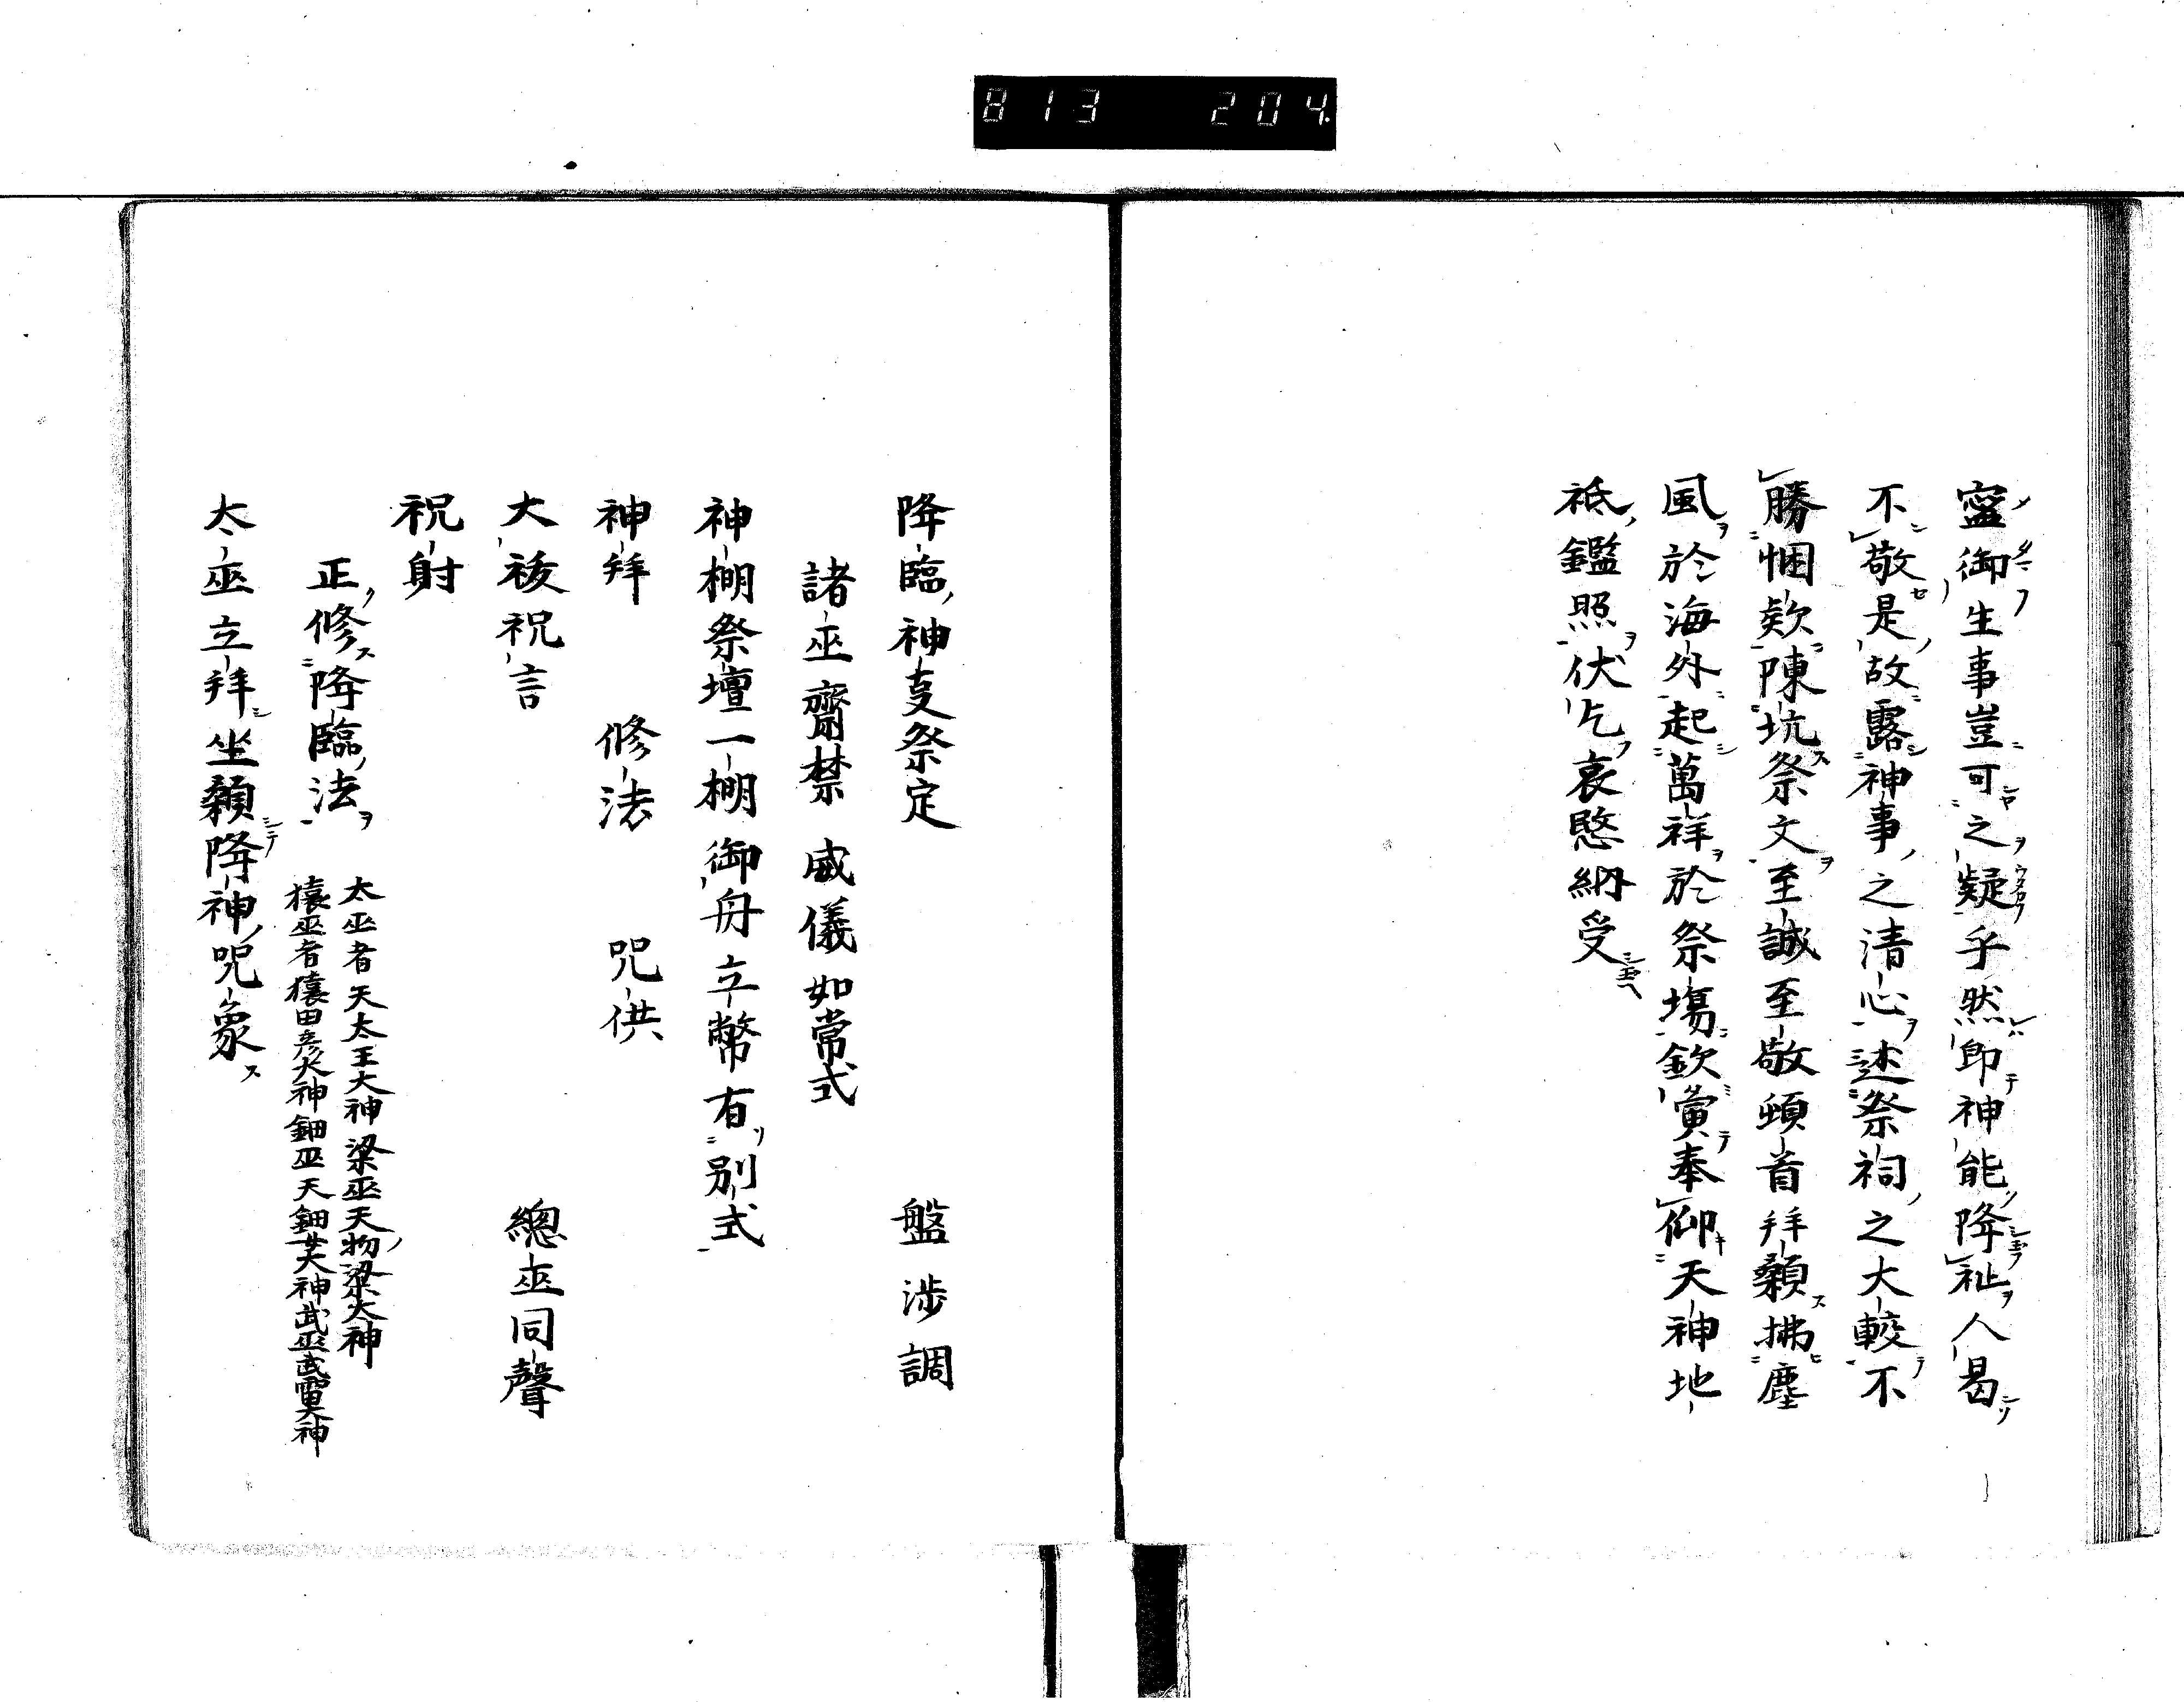 813 204
寍御生事豈可之疑乎然卽神能降祉人曷
不敬是故露神事之清心述祭祠之大較不
勝悃欵陳坑祭文至誠至敬頓首拜顙拂塵
風於海外起萬祥於祭場欽寅奉仰天神地
祇鑑照伏乞哀愍納受
降臨神支祭定 盤渉調
諸巫齋禁 威儀如常式
神棚祭壇一棚御舟立幣有別式
神拜 修法 咒供
大祓祝言 總巫同聲
祝射
正修降臨法
太巫者天太王大神梁巫天物梁大神
猿巫者猿田彦大神鈿巫天鈿女大神武巫武雷大神
太巫立拜坐顙降神咒象